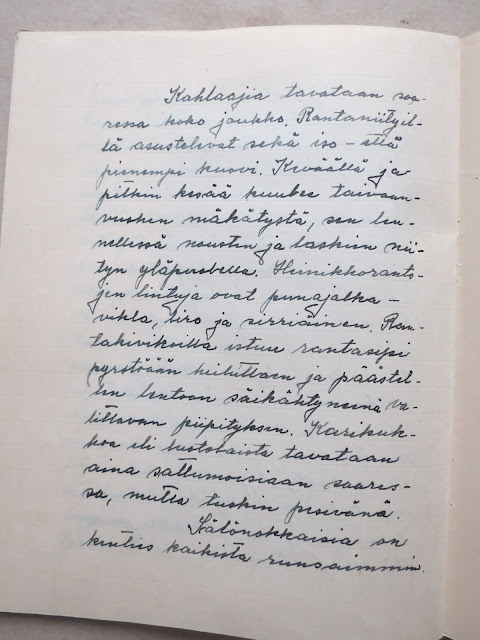 Kahlaajia tavataan saa-
ressa koko joukko. Rantaniityil-
lä asustelevat sekä iso- että
pienempi kuovi. Keväällä ja
pitkin kesää kuulee taivaan-
vuohen mäkätystä, sen len-
nellessä nousten ja laskien nii-
tyn yläpuolella. Heinikkoranto-
jen lintuja ovat punajalka-
vikla, liro ja sirriäinen. Ran-
takivikoilla istuu rantasipi
pyrstöään heiluttaen ja päästel-
len lentoon säikähtyneinä va-
littavan piipityksen. Karikuk-
koa eli luotolaista tavataan
aina sattumoisiaan saares-
sa, mutta tuskin pesivänä.
Sälönokkaisia on
kenties kaikista runsaimmin.